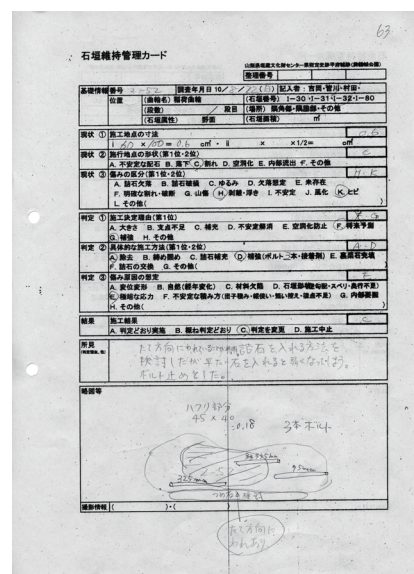 63
石垣維持管理カード
山梨県埋蔵文化財センター県指定史跡甲府城跡(舞鶴城公園)
整理番号
基礎情報 番号 2-52 調査年月日 10/8/22(日) 記入者:吉岡・皆川・村田・
位置 (曲輪名) 稲荷曲輪 (石垣番号) I-30・I-31・I-32・I-80
(段数) 段目 (場所) 隅角部・隅脇部・その他
(石垣属性) 野面 (石垣面積) ㎡
現状 ① 施工地点の寸法 0.6
i 60 × 100 = 0.6 c㎡・ii × ×1/2= c㎡
現状 ② 施行地点の形状(第1位・2位) C
A. 不安定な配石 B. 落下 C. 割れ D. 空洞化 E. 内部流出 F. その他
現状 ③ 傷みの区分(第1位・2位) H.K
A. 詰石欠落 B. 詰石破損 C. ゆるみ D. 欠落想定 E. 未存在
F. 明確な割れ・破断 G. 山傷 H. 剥離・浮き I. 不安定 J. 風化 K. ヒビ
L. その他( )
判定 ① 施工決定理由(第1位) G
A. 大きさ B. 支点不足 C. 補充 D. 不安定解消 E. 空洞化防止 F. 将来予測
G. 補強 H. その他
判定 ② 具体的な施工方法(第1位・2位) A.D
A. 除去 B. 締め固め C. 詰石補充 D. 補強(ボルト 3本・接着剤) E. 裏栗石充填
F. 詰石の交換 G. その他( )
判定 ③ 傷み原因の想定 E
A. 変位変形 B. 自然(経年変化) C. 材料欠陥 D. 石垣部積(勾配・スベリ・奥行不足)
E. 極端な応力 F. 不安定な積み方(団子積み・縦使い・短い控え・接点不足) G. 内部要因
H. その他( )
結果 施工結果 C
A. 判定どおり実施 B. 概ね判定どおり C. 判定を変更 D. 施工中止
所見 たて方向にわれているため詰石を入れる方法を
検討したが平たい石を入れると弱くなってしまう。
ボルト止めとした。
略図等
ハツリ部分
45×40
=0.18 3本ボルト
2-52
325mm
95mm
撮影情報 ( )・( )
たて方向に
われあり